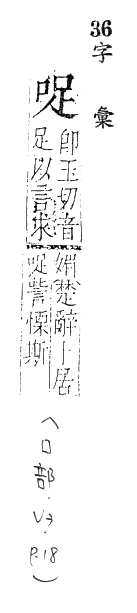 36字彙
哫
即玉切音
足以言求
媚楚辭卜居
哫訾慄斯
(口部.V3.P.18)